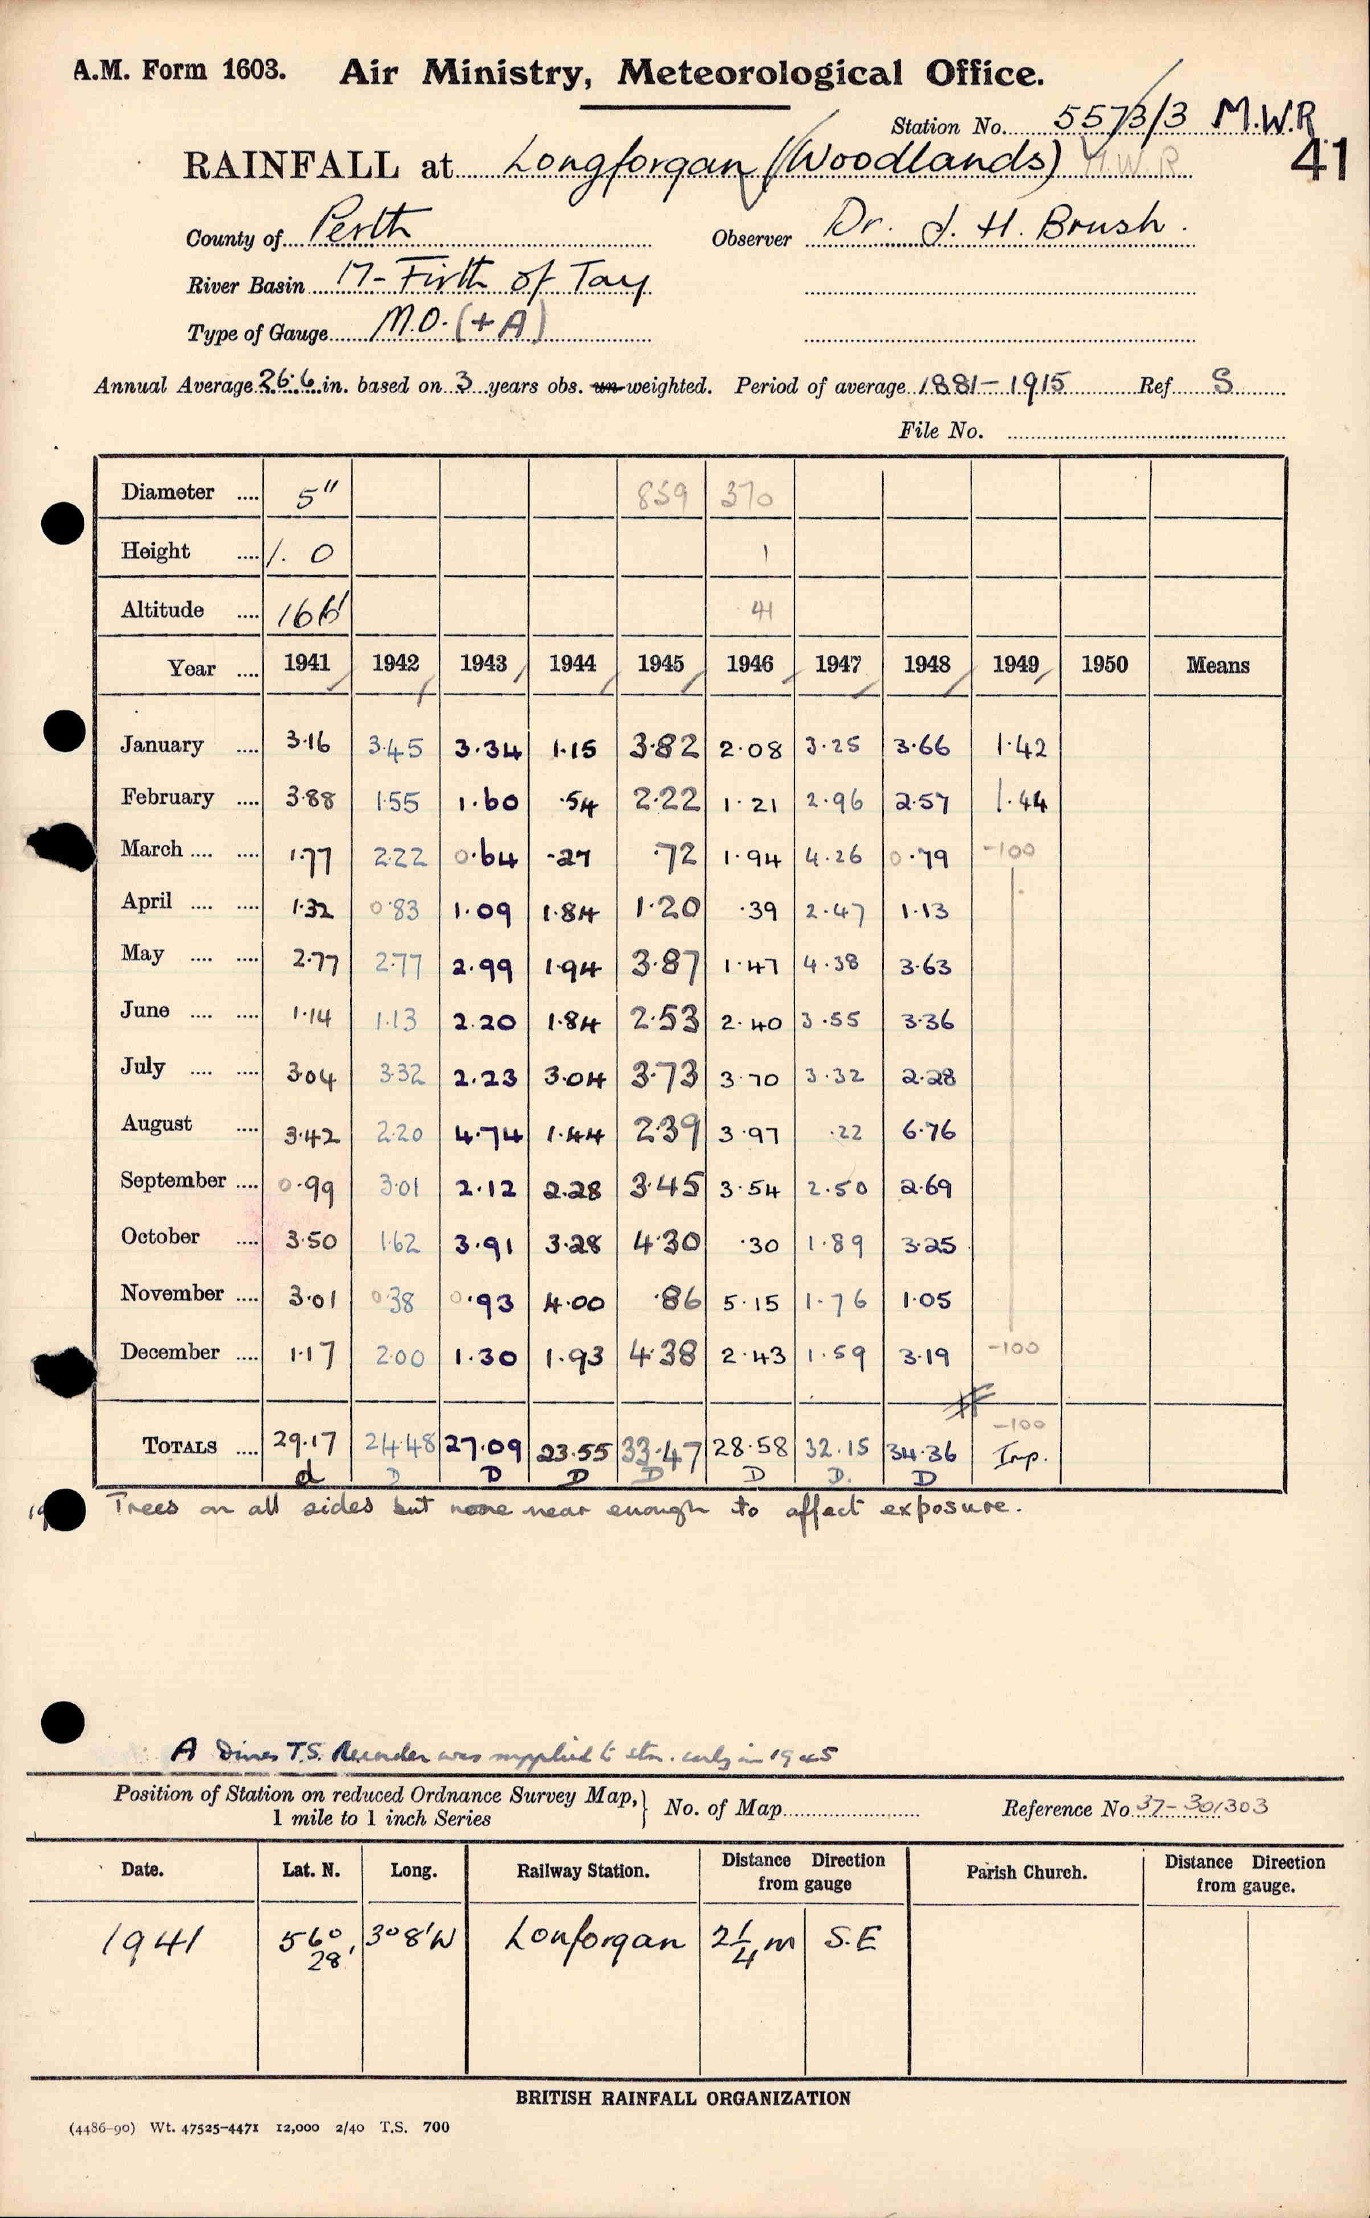 A.M. Form 1603. Air Ministry, Meteorological Office.
Station No. 5573/3 M.W.R
41
RAINFALL at Longforgan (Woodlands) M.W.R
County of Perth Observer Dr. J. H. Brush.
River Basin 17 - Firth of Tay
Type of Gauge M.O. (+A)
Annual Average 26.6 in. based on 3 years obs. un-weighted. Period of average 1881 - 1915 Ref S
File No.
Diameter .... 5" 859 370
Height .... 1. 0 1
Altitude .... 166' 41
Year .... 1941 1942 1943 1944 1945 1946 1947 1948 1949 1950 Means
January .... 3.16 3.45 3.34 1.15 3.82 2.08 3.25 3.66 1.42
February .... 3.88 1.55 1.60 .54 2.22 1.21 2.96 2.57 1.44
March .... .... 1.77 2.22 0.64 .27 .72 1.94 4.26 0.79 -100
April .... .... 1.32 0.83 1.09 1.84 1.20 .39 2.47 1.13
May .... .... 2.77 2.77 2.99 1.94 3.87 1.47 4.38 3.63
June .... .... 1.14 1.13 2.20 1.84 2.53 2.40 3.55 3.36
July .... .... 3.04 3.32 2.23 3.04 3.73 3.70 3.32 2.28
August .... 3.42 2.20 4.74 1.44 2.39 3.97 .22 6.76
September .... 0.99 3.01 2.12 2.28 3.45 3.54 2.50 2.69
October .... 3.50 1.62 3.91 3.28 4.30 .30 1.89 3.25
November .... 3.01 0.38 0.93 4.00 .86 5.15 1.76 1.05
December .... 1.17 2.00 1.30 1.93 4.38 2.43 1.59 3.19 -100
-100
TOTALS .... 29.17 24.48 27.09 23.55 33.47 28.58 32.15 34.36 Imp.
d D D D D D D. D
Trees on all sides but none near enough to affect exposure.
A Dines T.S. Recorder was supplied to stn. early in 1945
Position of Station on reduced Ordnance Survey Map, No. of Map Reference No 37-301303
1 mile to 1 inch Series
Date. Lat. N. Long. Railway Station. Distance Direction from gauge Parish Church. Distance Direction from gauge.
1941 56° 28' 3°8'W Lonforgan 2 1/4 m S.E
BRITISH RAINFALL ORGANIZATION
(4486-90) Wt. 47525-4471 12,000 2/40 T.S. 700